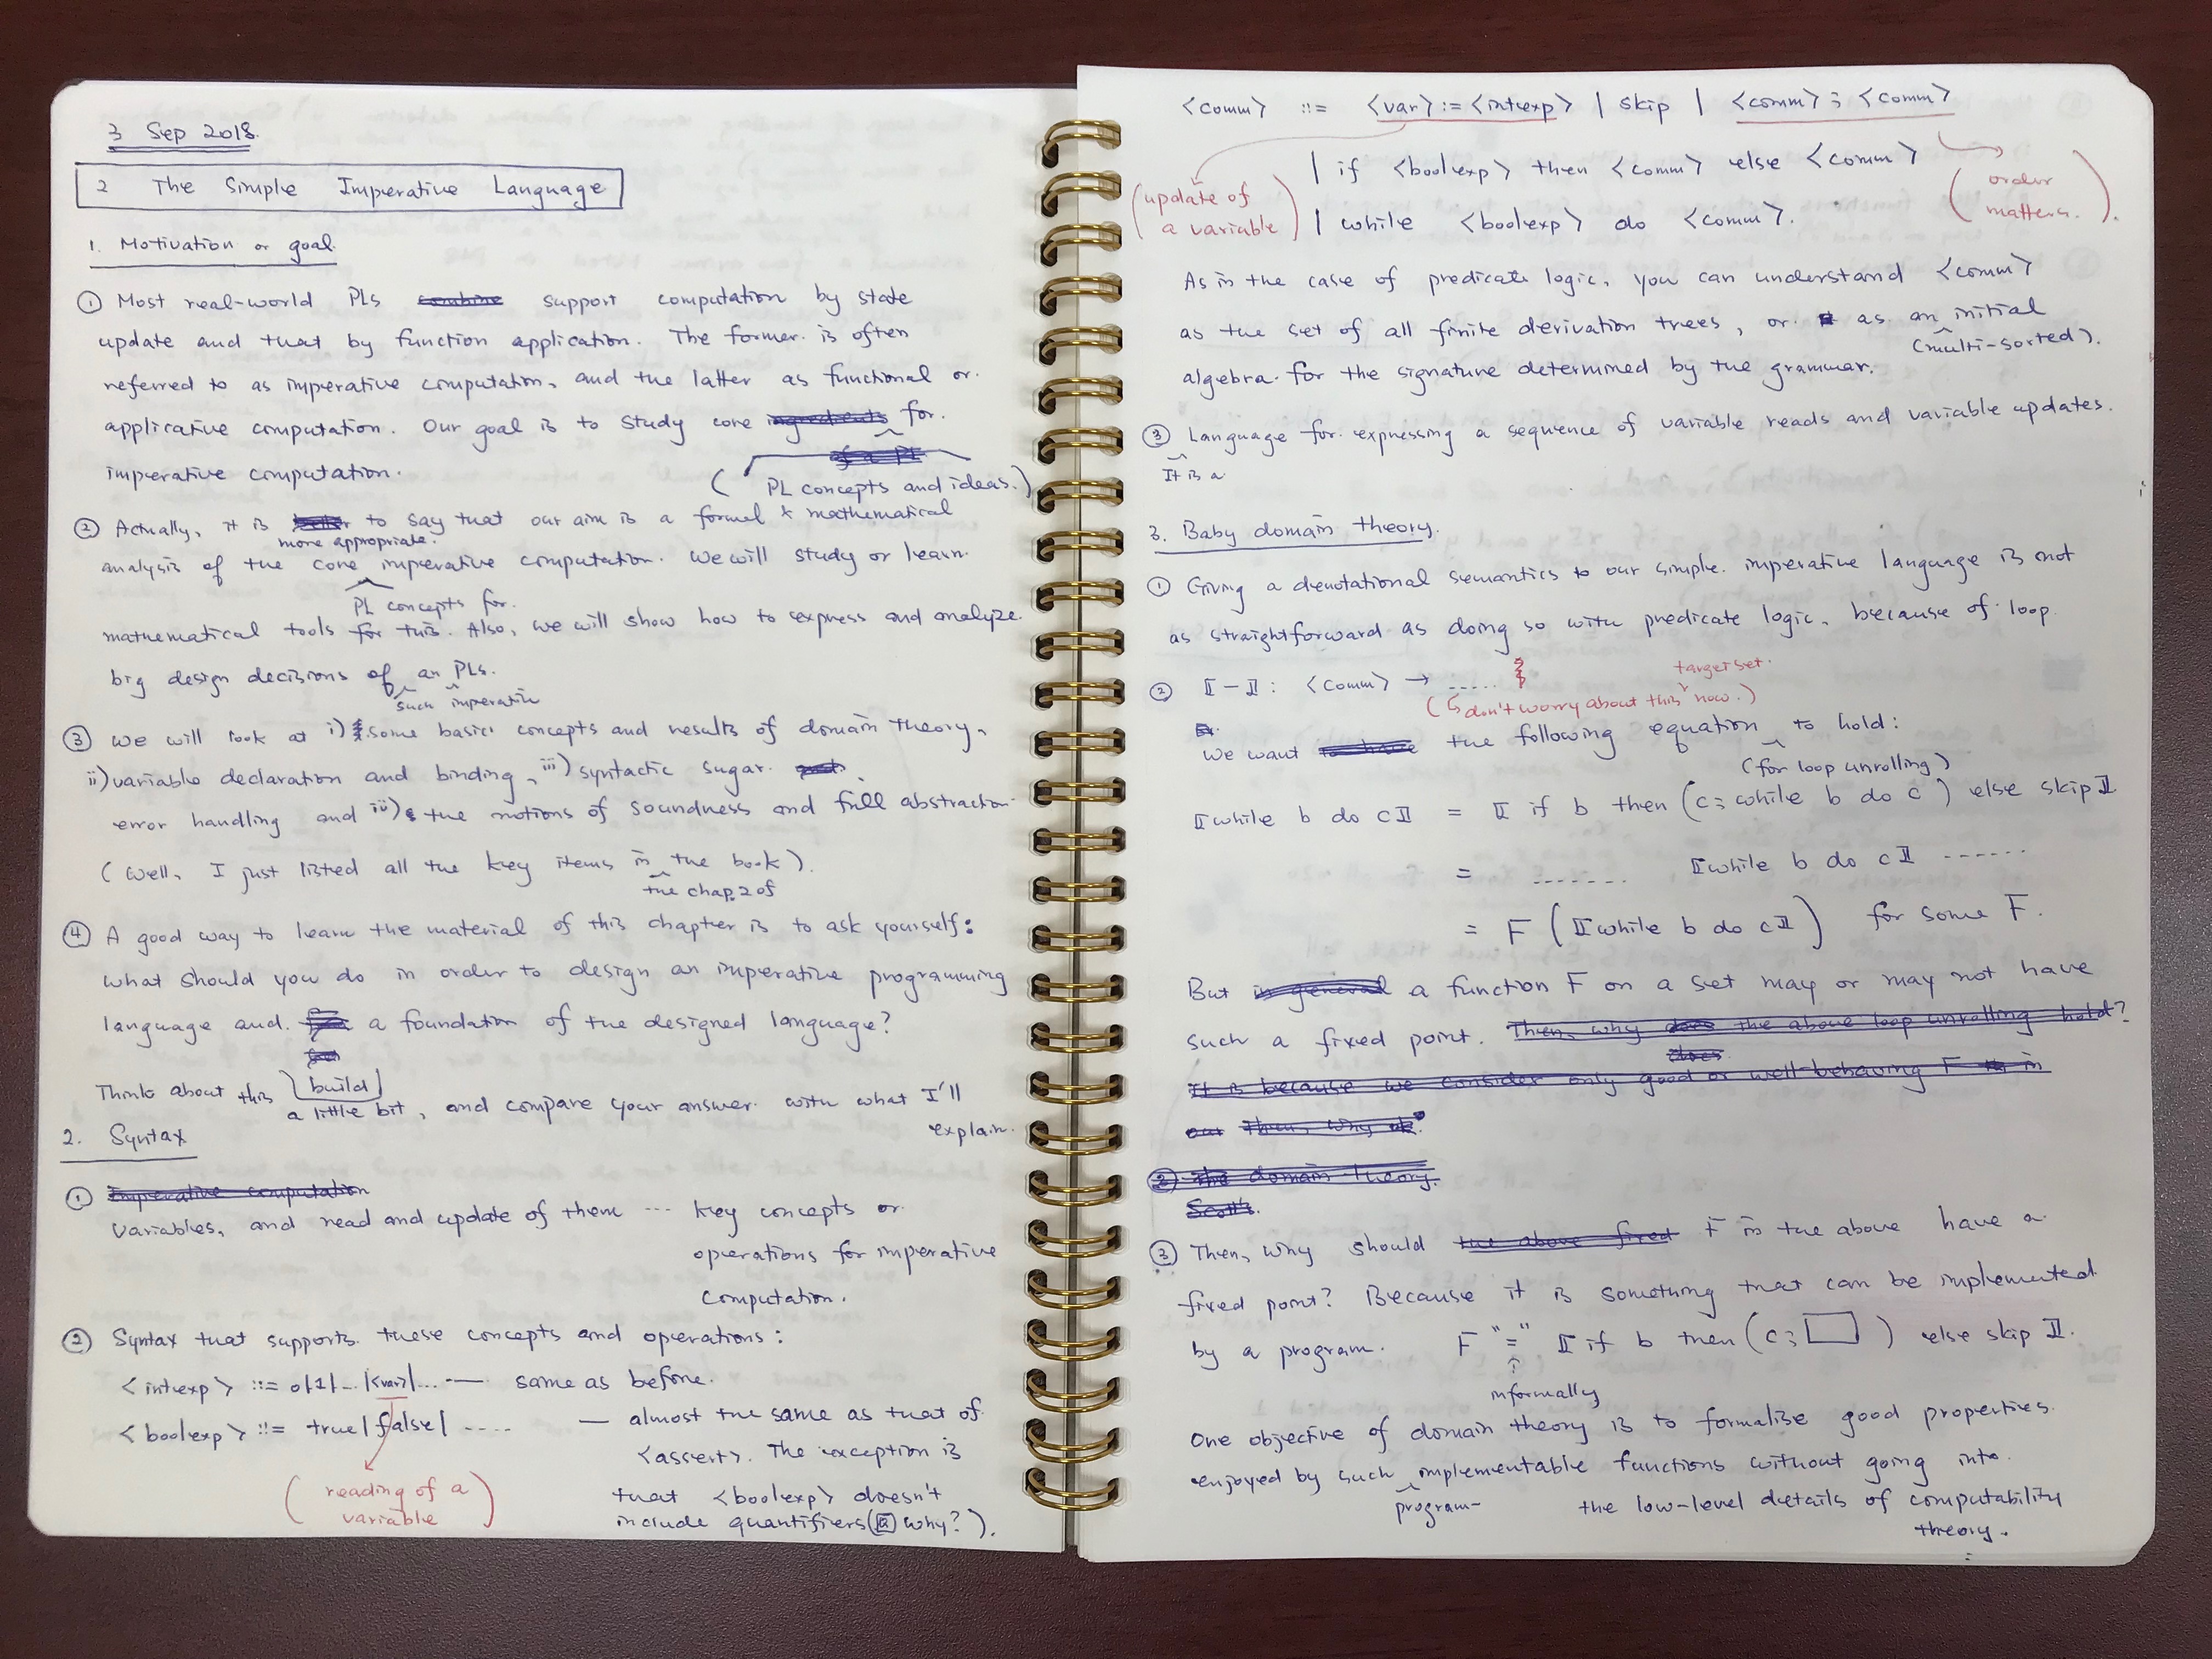 3 Sep 2018.
2 The Simple Imperative Language
1. Motivation or goal.
① Most real-world PLs support computation by state
update and that by function application. The former is often
referred to as imperative computation, and the latter as functional or
applicative computation. Our goal is to study core ingredients for
of a PL
imperative computation.
( PL concepts and ideas.)
② Actually, it is to say that our aim is a formal & mathematical
more appropriate
analysis of the core imperative computation. We will study or learn
PL concepts for
mathematical tools for this. Also, we will show how to express and analyze
big design decisions of an PLs.
such imperative
③ We will look at i) some basic concepts and results of domain theory,
ii) variable declaration and binding, iii) syntactic sugar.
error handling and iv) the notions of soundness and full abstraction.
(Well, I just listed all the key items in the book).
the chap.2 of
④ A good way to learn the material of this chapter is to ask yourself:
what should you do in order to design an imperative programming
language and a foundation of the designed language?
build
Think about this a little bit, and compare your answer with what I'll
explain.
2. Syntax
① Imperative computation
Variables, and read and update of them ... key concepts or
operations for imperative
computation.
② Syntax that supports these concepts and operations:
<intexp> ::= 0|1|...|<var>|... — same as before.
<boolexp> ::= true|false| .... — almost the same as that of
<assert>. The exception is
(reading of a
variable)
that <boolexp> doesn't
include quantifiers ( why?).
<comm> ::= <var> := <intexp> | skip | <comm> ; <comm>
| if <boolexp> then <comm> else <comm>
(update of
a variable)
(order
matters.)
| while <boolexp> do <comm>.
As in the case of predicate logic, you can understand <comm>
as the set of all finite derivation trees, or as an initial
(multi-sorted).
algebra for the signature determined by the grammar.
③ Language for expressing a sequence of variable reads and variable updates.
It is a
3. Baby domain theory.
① Giving a denotational semantics to our simple imperative language is not
as straightforward as doing so with predicate logic, because of loop.
② ⟦-⟧ : <comm> → .....
target set.
(↳ don't worry about this now.)
We want to have the following equation to hold:
(for loop unrolling)
⟦while b do c⟧ = ⟦if b then (c; while b do c) else skip⟧
= ....... ⟦while b do c⟧ ......
= F (⟦while b do c⟧) for some F.
But in general a function F on a set may or may not have
such a fixed point. Then, why does the above loop unrolling hold?
does
It is because we consider only good or well-behaving F in
our Then, why
② The domain theory.
Scott's.
③ Then, why should the above fixed F in the above have a
fixed point? Because it is something that can be implemented
by a program. F "=" ⟦if b then (c; □) else skip⟧.
↑
informally
One objective of domain theory is to formalise good properties
enjoyed by such implementable functions without going into
program-
the low-level details of computability
theory.